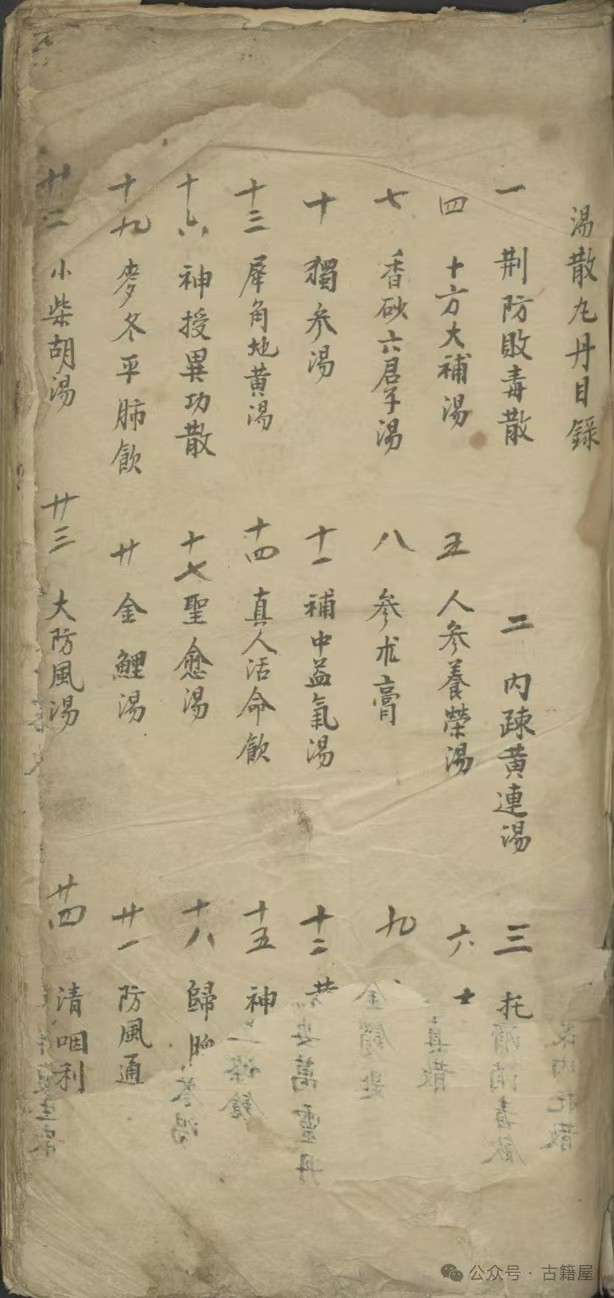 湯散丸丹目錄
一 荆防敗毒散 二 內疎黄連湯 三 托
四 十方大補湯 五 人參養榮湯 六 士
七 香砂六君子湯 八 參朮膏 九
十 獨参湯 十一 補中益氣湯 十二
十三 犀角地黄湯 十四 真人活命飲 十五 神
十六 神授異功散 十七 聖愈湯 十八 歸脾
十九 麥冬平肺飲 廿 金鯉湯 廿一 防風通
廿二 小柴胡湯 廿三 大防風湯 廿四 清咽利
公众号·古籍屋